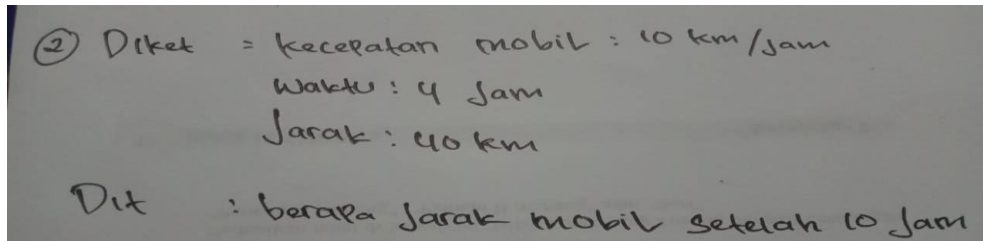 ② Diket = kecepatan mobil : 10 km/jam
Waktu : 4 Jam
Jarak : 40 km
Dit : berapa Jarak mobil setelah 10 Jam